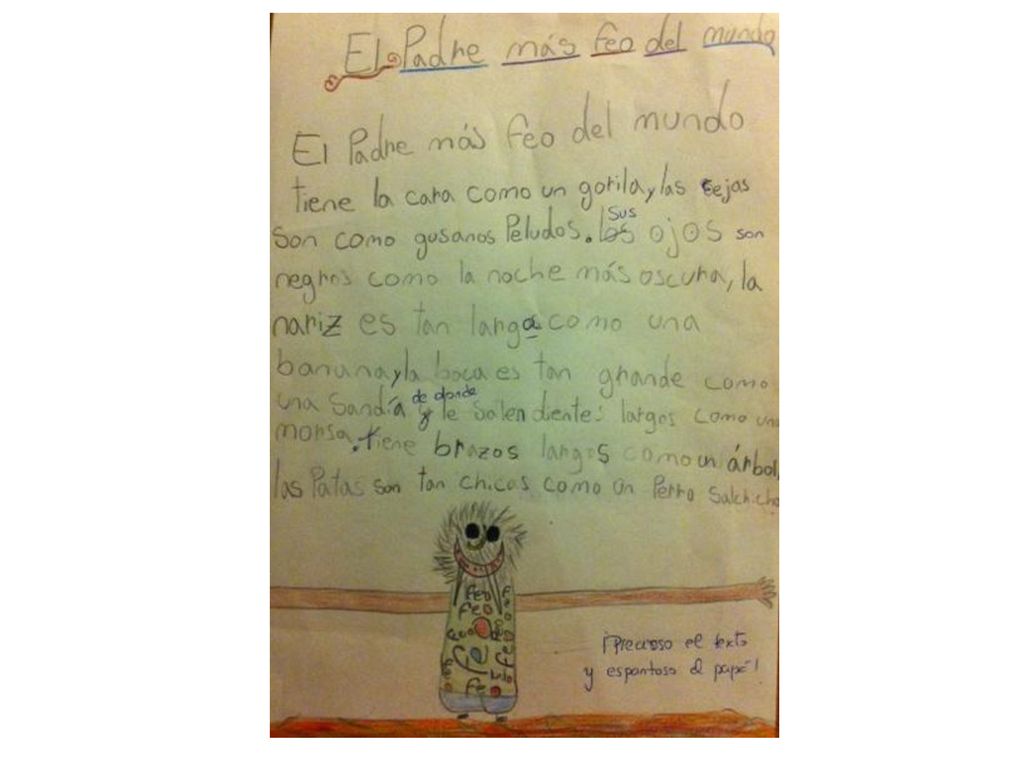 El Padre más feo del mundo
El Padre más feo del mundo
tiene la cara como un gorila y las cejas
son como gusanos Peludos. los
sus
ojos son
negros como la noche más oscura, la
nariz es tan larga como una
banana y la boca es tan grande como
una sandía y
de donde
le salen dientes largos como una
morsa. tiene brazos largos como un árbol,
las Patas son tan chicas como un Perro Salchicha
feo
feo
feo
feo
feo
feo
¡Precioso el texto
y espantoso el papá!